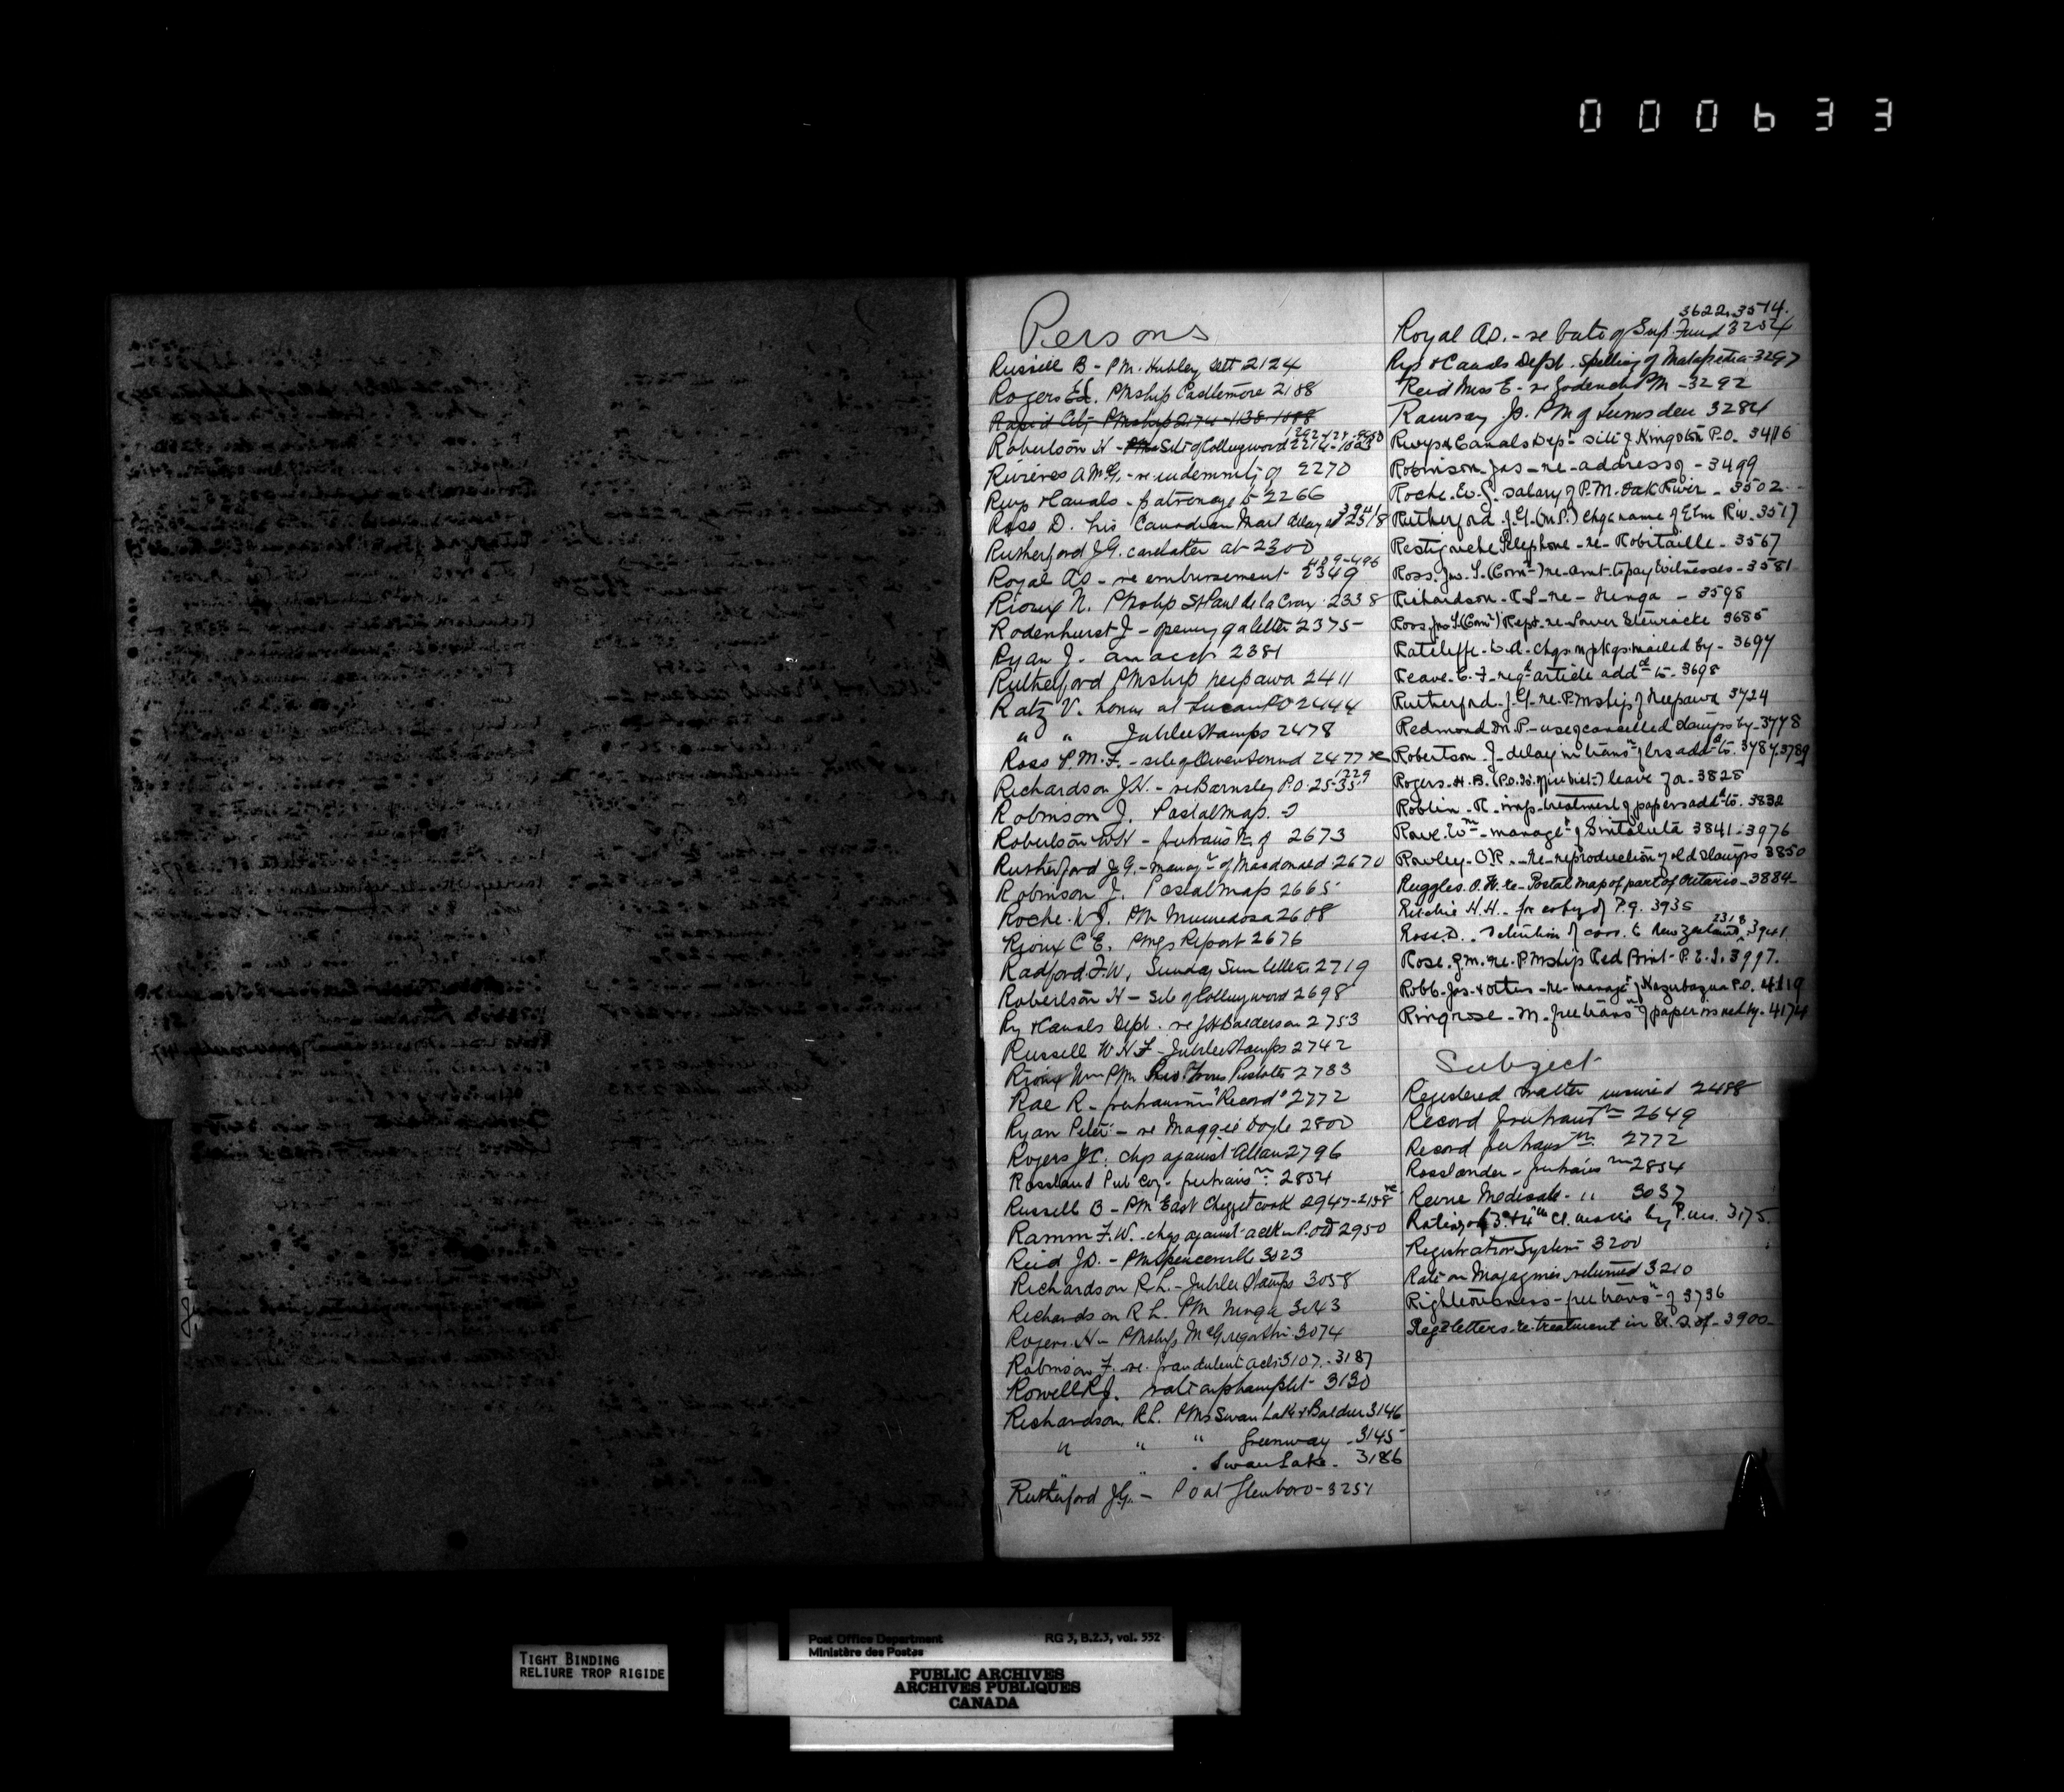 000633
Persons
Russell B - PM. Hubley Sett 2124
Rogers PMship Castlemore 2188
Rapid City PMship 2174-1138-1088
Robertson H - Site of Collingwood 2214-1083
Rivieres A McG. - re indemnity of 2270
Rwys & Canals - patronage to 2266
Ross D. his Canadian Mail delayed 2318 3941
Rutherford J.G. caretaker at 2300
Royal AD - re embursement 2349 489-496
Rioux N. PMship St Paul de la Croix 2338
Rodenhurst J - opening of a letter 2375
Ryan J. an acct 2381
Rutherford PMship Neepawa 2411
Ratz V. at Lucan PO 2444
" " Jubilee Stamps 2478
Ross P.M.F. - site of Owen Sound 2477
Richardson J.H. - re Barnsley P.O. 2535 1229
Robinson J. Postal map.
Robertson WH - free trans n of 2673
Rutherford J.G. - manag t of Macdonald 2670
Robinson J. Postal map 2665
Roche W J. PM Minnedosa 2608
Rioux C E. PMGs Report 2676
Radford F.W. Sunday Sun letter 2719
Robertson H - Site of Collingwood 2698
Ry & Canals Dept. re J.H Balderson 2753
Russell W H F - Jubilee Stamps 2742
Rioux Wm PM Trois Pistoles 2783
Rae R - free transm "Record" 2772
Ryan Peter - re Maggie Doyle 2800
Rogers J C. chgs against Allan 2796
Rossland Pub Coy - free trans n 2854
Russell B - PM East Chezzetcook 2947-2158
Ramm F.W. chgs against in P.O.D 2950
Reid J.D. - PM Spencerville 3023
Richardson R.L. - Jubilee Stamps 3058
Richardson R L. PM Ninga 3043
Rogers H - PMship McGregor 3074
Robinson F. re fraudulent acts 3107 - 3187
Rowell R J. rate on pamphlet 3130
Richardson, R.L. PMs Swan Lake & Baldur 3146
" " " Greenway 3145
" " . Swan Lake - 3186
Rutherford J.G. - PO at Glenboro - 3251
3622, 3514.
Royal AD. - re bate of Sup. Fund 3254
Rys & Canals Dept. Spelling of Matapedia - 3297
Reid Miss E - re Goderich PM - 3292
Ramsay Js. PM of Lumsden 3284
Rwys & Canals Dep t site of Kingston P.O. 3416
Robinson - Jas - re - address of - 3499
Roche. W. J. salary of P.M. Oak River - 3502
Rutherford. J.G. (M.P.) chge name of Elm Riv. 3517
Restigouche Telephone - re - Robitaille - 3567
Ross. Jno. S. (Com r) re - amt. to pay Witnesses - 3581
Richardson - R L - re - Ninga - 3598
Ross Jno S. (Com r) Rept. re - Lower Stewiacke 3685
Ratcliffe. W. A. - chgs. on pkgs. mailed by - 3697
Reave. C. F. reg d article add d to - 3698
Rutherford. J.G. re. P.Mship of Neepawa 3724
Redmond Dr. P. - use of cancelled stamps by - 3778
Robertson. J. delay in trans n of lrs add d to. 3787, 3789
Rogers. H. B. (P.O. ) leave for - 3828
Roblin - R. treatment of papers add d to. 3832
Rowe. W m - manage t of Sintaluta 3841 - 3976
Rowley - O.R. - re - reproduction of old Stamps 3850
Ruggles. O. W. re - Postal map of part of Ontario - 3884
Ritchie H.H. - for copy of P.G. 3935
Ross. D. - detention of corr. to New Zealand, 3941 2318
Rose. G.M. re. P Mship Red Point - P.E.I. 3997.
Robb. Jas. & others - re - manage t of Kazubazua P.O. 4119
Ringrose - M. free trans n of paper issued by - 4174
Subject
Registered matter insured 2488
Record free trans n 2649
Record free trans n 2772
Rosslander - free trans n 2854
Revue Medicale - " 3037
Rating of 3 & 4 th Cl. matter by P.ms. 3175.
Registration System 3200
Rate on Magazines returned 3210
Righteousness - free trans n of 3736
Reg d letters - re - treatment in U.S. of - 3900
TIGHT BINDING
RELIURE TROP RIGIDE
Post Office Department RG 3, B.2.3, vol. 552
Ministère des Postes
PUBLIC ARCHIVES
ARCHIVES PUBLIQUES
CANADA